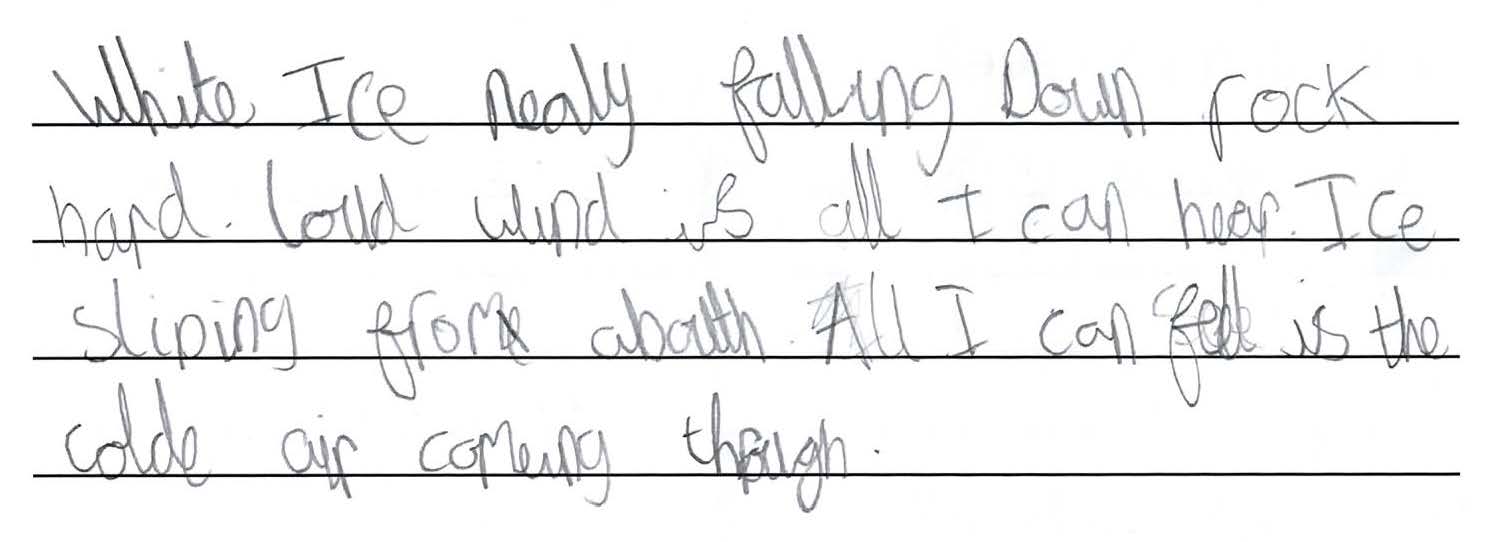 White Ice nealy falling Down rock
hard. loud wind is all I can hear. Ice
sliping from abouth. All I can feel is the
colde air comeing though.